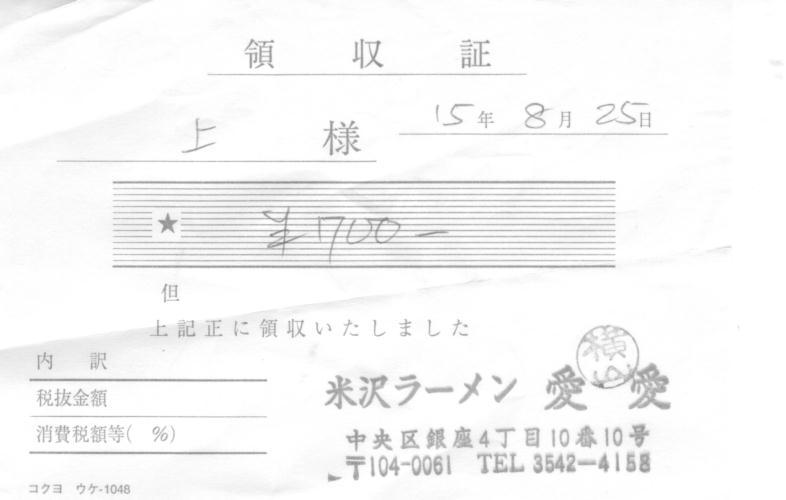 領収証
15年 8月 25日
上 様
★ ¥1700-
但
上記正に領収いたしました
内 訳
税抜金額
消費税額等( %)
横
米沢ラーメン 愛愛
中央区銀座4丁目10番10号
〒104-0061 TEL 3542-4158
コクヨ ウケ-1048